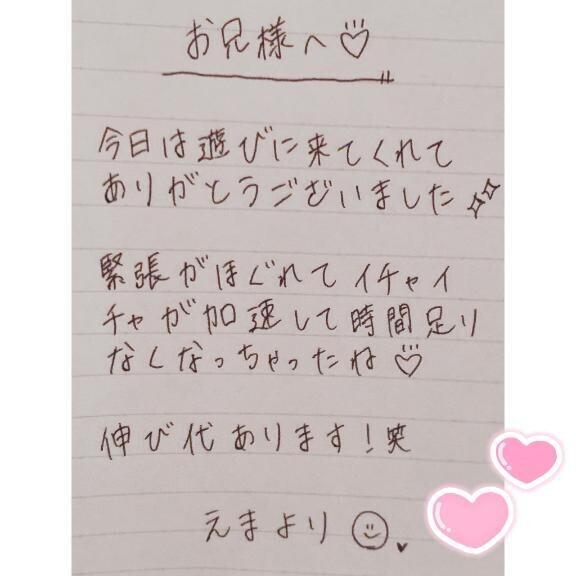 お兄様へ♡
今日は遊びに来てくれて
ありがとうございました
緊張がほぐれてイチャイ
チャが加速して時間足り
なくなっちゃったね♡
伸び代あります!笑
えまより